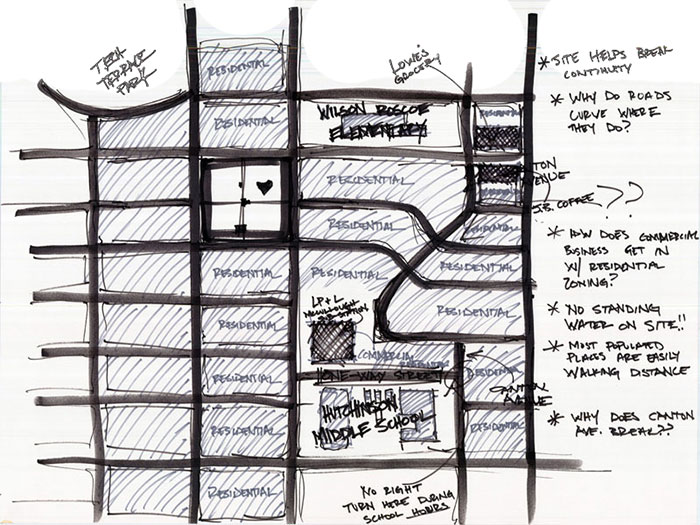 TECH
TERRACE
PARK
LOWE'S
GROCERY
RESIDENTIAL
RESIDENTIAL
WILSON ROSCOE
ELEMENTARY
RESIDENTIAL
RESIDENTIAL
AVENUE
J&B COFFEE ??
RESIDENTIAL
RESIDENTIAL
RESIDENTIAL
RESIDENTIAL
RESIDENTIAL
RESIDENTIAL
LP+L
SUB-STATION
RESIDENTIAL
COMMERCIAL
BUSINESS
ONE-WAY STREET
RESIDENTIAL
RESIDENTIAL
CANTON
AVENUE
HUTCHINSON
MIDDLE SCHOOL
RESIDENTIAL
RESIDENTIAL
RESIDENTIAL
NO RIGHT
TURN HERE DURING
SCHOOL HOURS
* SITE HELPS BREAK
CONTINUITY
* WHY DO ROADS
CURVE WHERE
THEY DO?
* HOW DOES COMMERCIAL
BUSINESS GET IN
W/ RESIDENTIAL
ZONING?
* NO STANDING
WATER ON SITE!!
* MOST POPULATED
PLACES ARE EASILY
WALKING DISTANCE
* WHY DOES CANTON
AVE. BREAK??